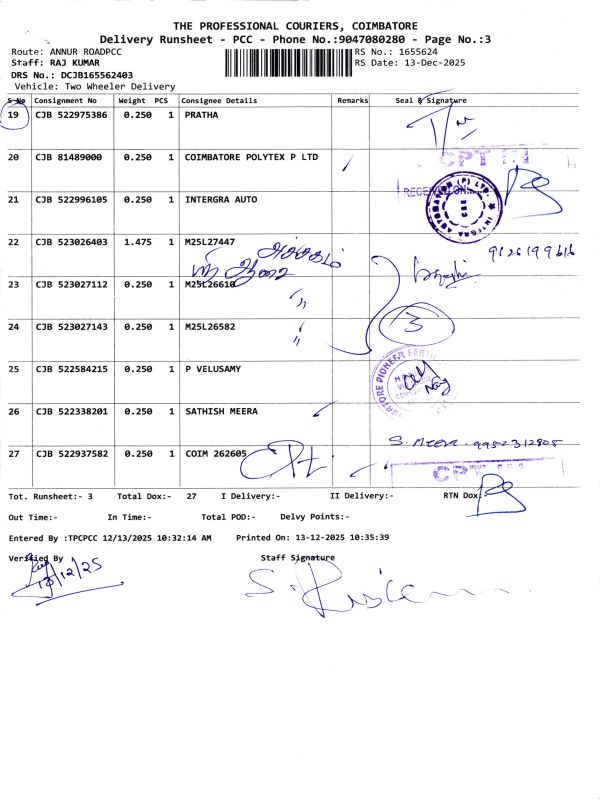 THE PROFESSIONAL COURIERS, COIMBATORE
Delivery Runsheet - PCC - Phone No.:9047080280 - Page No.:3
Route: ANNUR ROADPCC RS No.: 1655624
Staff: RAJ KUMAR RS Date: 13-Dec-2025
DRS No.: DCJB165562403
Vehicle: Two Wheeler Delivery
S No Consignment No Weight PCS Consignee Details Remarks Seal & Signature
19 CJB 522975386 0.250 1 PRATHA
20 CJB 81489000 0.250 1 COIMBATORE POLYTEX P LTD
CPT
21 CJB 522996105 0.250 1 INTERGRA AUTO
INTEGRA AUTOMATION (P) LTD
22 CJB 523026403 1.475 1 M25L27447
23 CJB 523027112 0.250 1 M25L26610
24 CJB 523027143 0.250 1 M25L26582
3
25 CJB 522584215 0.250 1 P VELUSAMY
26 CJB 522338201 0.250 1 SATHISH MEERA
S. Meera 9952312805
27 CJB 522937582 0.250 1 COIM 262605
CPT
Tot. Runsheet:- 3 Total Dox:- 27 I Delivery:- II Delivery:- RTN Dox:
Out Time:- In Time:- Total POD:- Delvy Points:-
Entered By :TPCPCC 12/13/2025 10:32:14 AM Printed On: 13-12-2025 10:35:39
Verified By Staff Signature
13/12/25